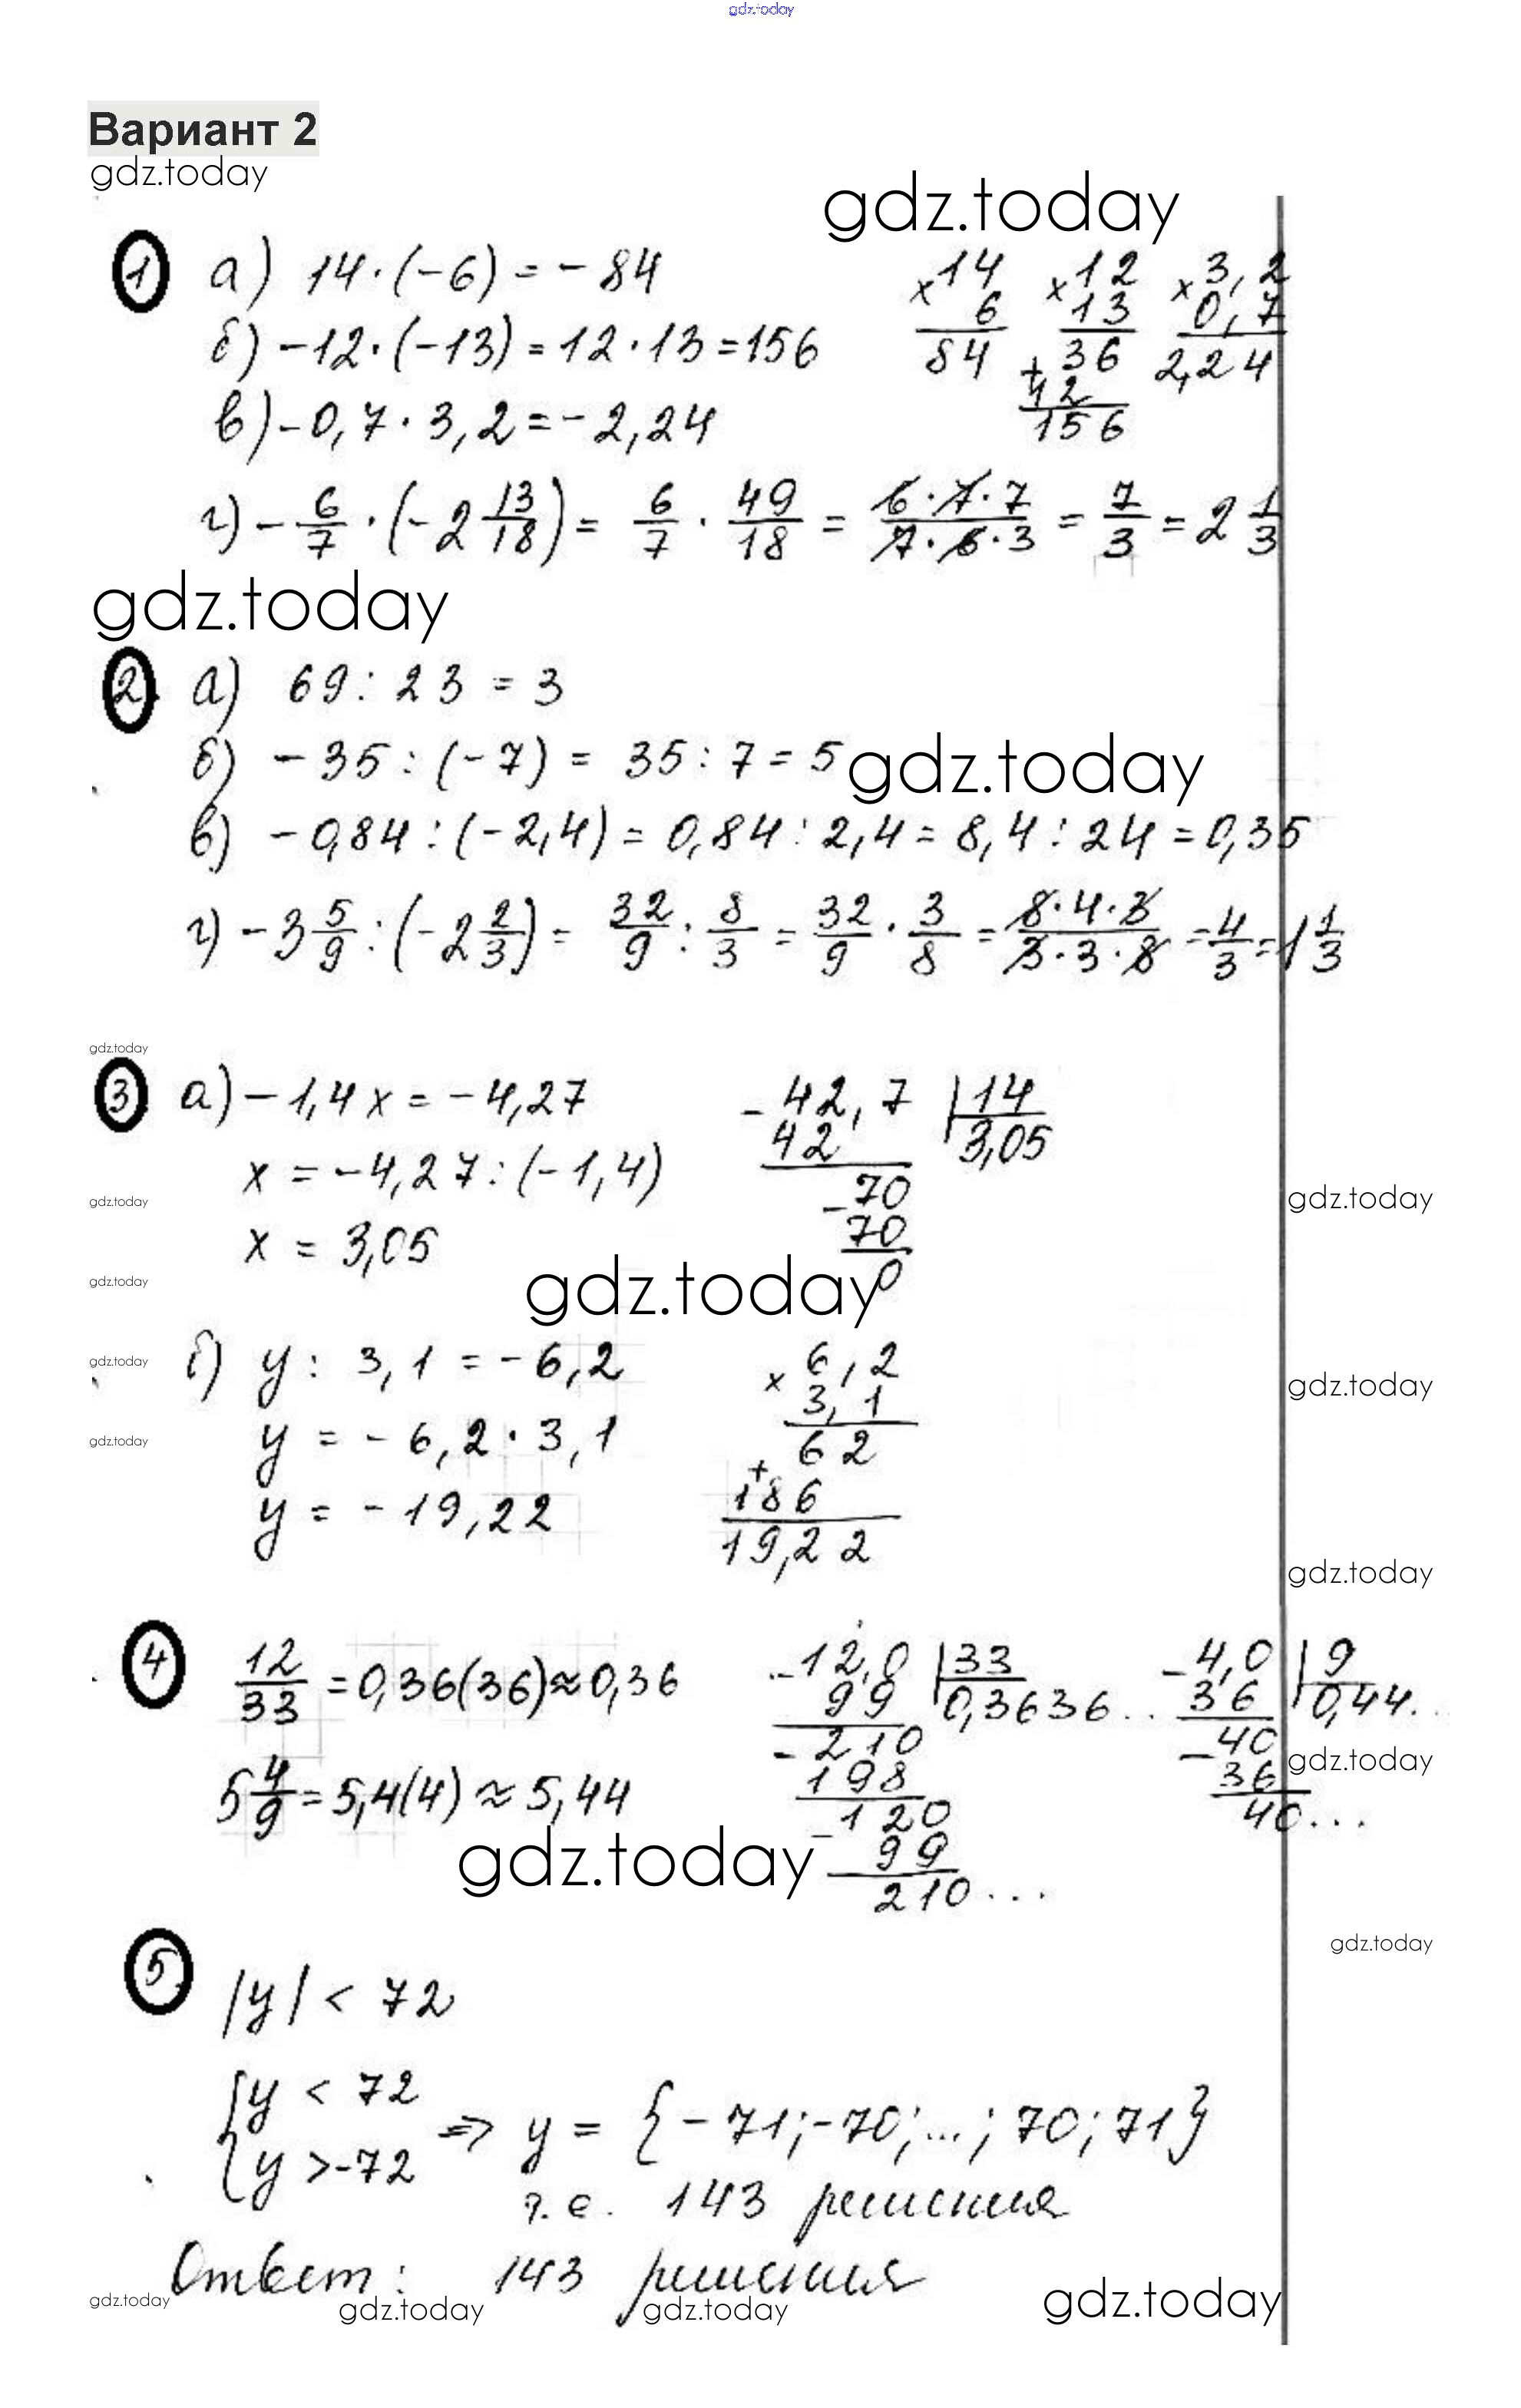 gdz.today
Вариант 2
gdz.today
gdz.today
1 а) 14·(-6) = -84
×14 6 84
×12 13 +36 12 156
×3,2 0,7 2,24
б) -12·(-13) = 12·13 = 156
в) -0,7·3,2 = -2,24
г) -6/7·(-2 13/18) = 6/7 · 49/18 = 6·7·7/7·6·3 = 7/3 = 2 1/3
gdz.today
2 а) 69 : 23 = 3
б) -35 : (-7) = 35 : 7 = 5
gdz.today
в) -0,84 : (-2,4) = 0,84 : 2,4 = 8,4 : 24 = 0,35
г) -3 5/9 : (-2 2/3) = 32/9 : 8/3 = 32/9 · 3/8 = 8·4·3/3·3·8 = 4/3 = 1 1/3
gdz.today
3 а) -1,4x = -4,27
x = -4,27 : (-1,4)
x = 3,05
-42,7 |14
42 3,05
-70
70
0
gdz.today
gdz.today
gdz.today
gdz.today
б) y : 3,1 = -6,2
y = -6,2 · 3,1
y = -19,22
× 6,2
3,1
62
+
186
19,22
gdz.today
gdz.today
gdz.today
gdz.today
4 12/33 = 0,36(36) ≈ 0,36
5 4/9 = 5,4(4) ≈ 5,44
-12,0 |33
99 0,3636...
-210
198
-120
99
210...
-4,0 |9
36 0,44..
-40
36
40...
gdz.today
gdz.today
gdz.today
5 |y| < 72
{y < 72
{y >-72
⇒ y = {-71;-70;...; 70; 71}
т.е. 143 решения
Ответ: 143 решения
gdz.today
gdz.today
gdz.today
gdz.today